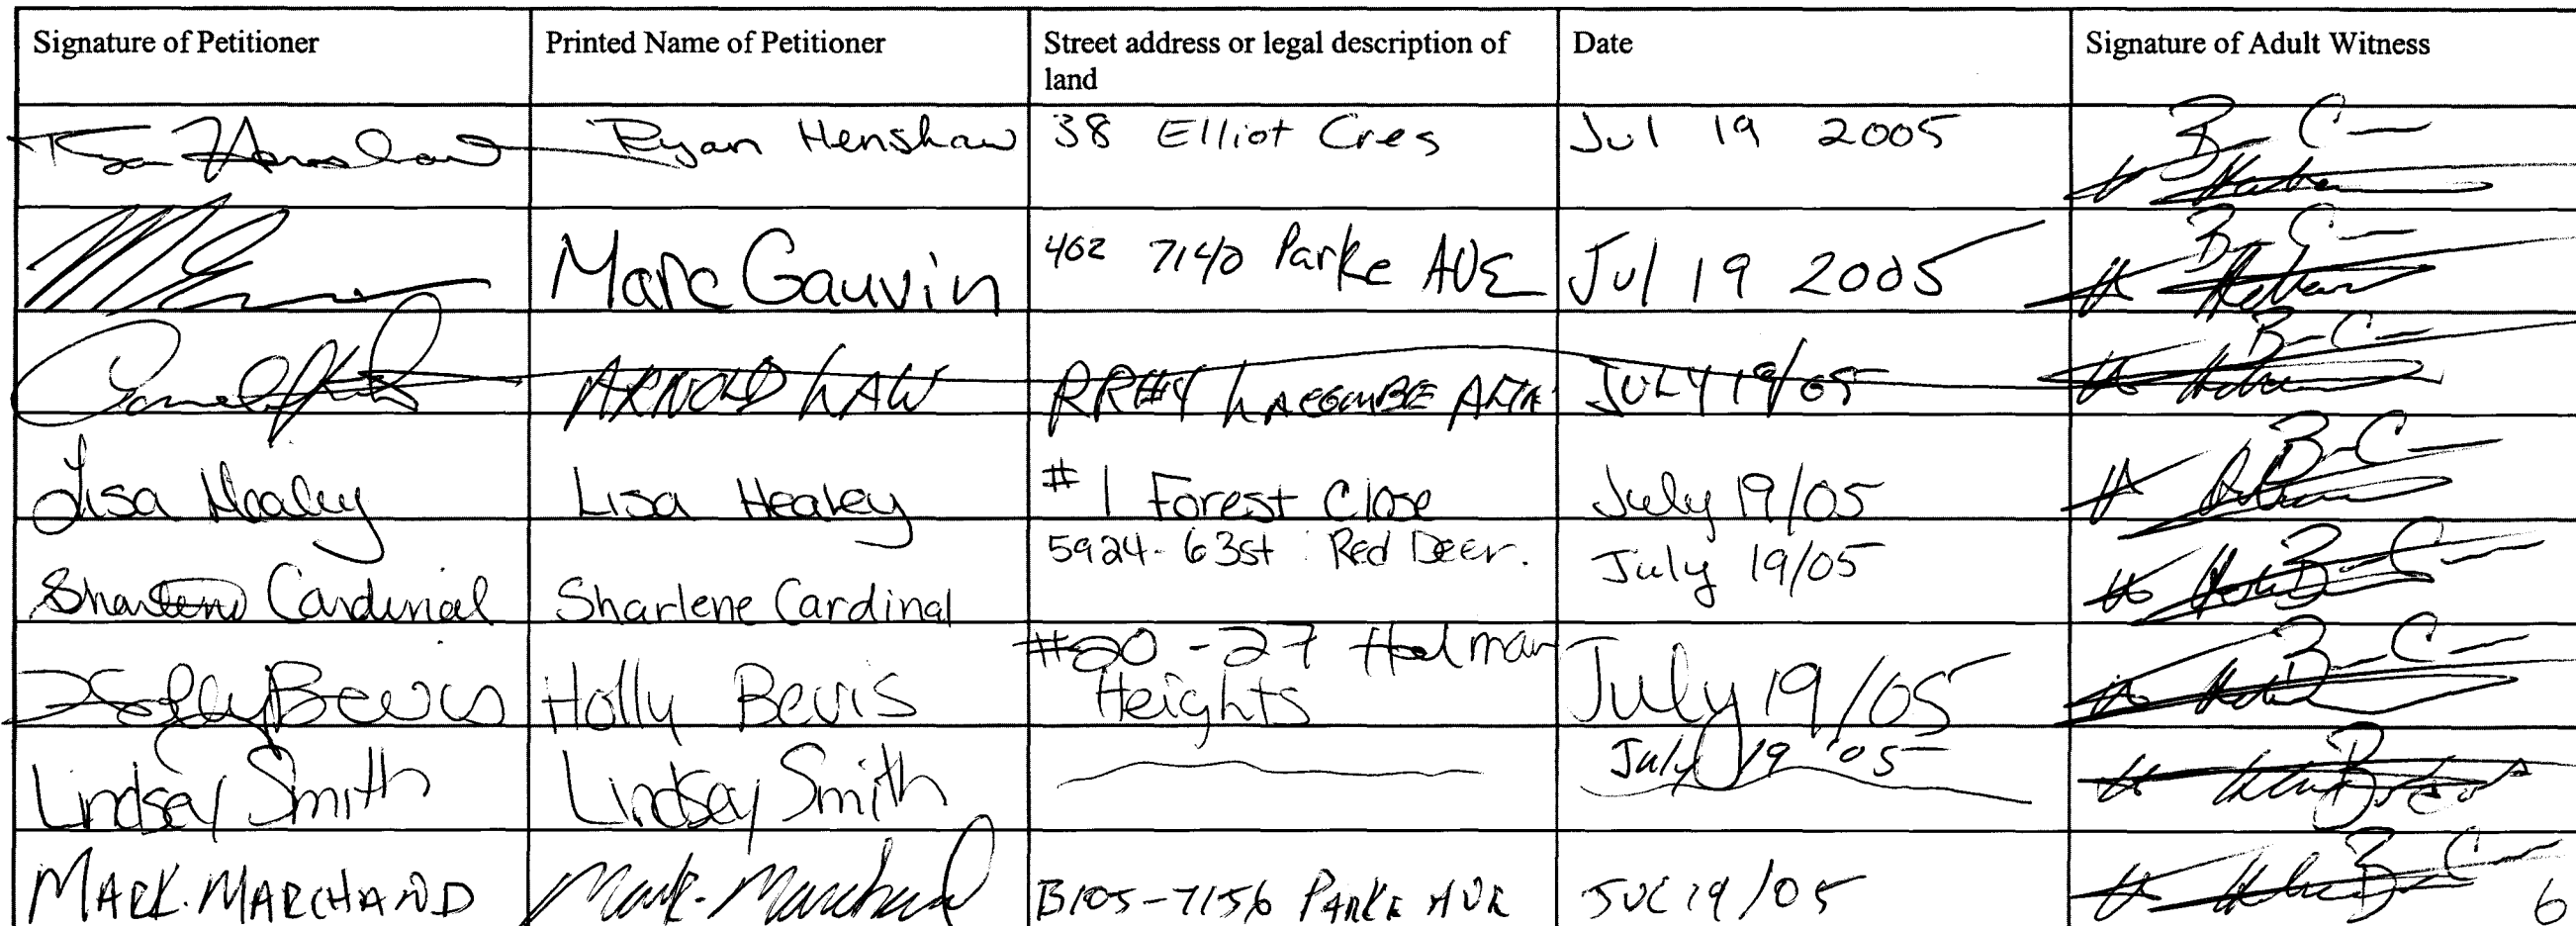 Signature of Petitioner Printed Name of Petitioner Street address or legal description of Date Signature of Adult Witness
land
Ryan Henshaw 38 Elliot Cres Jul 19 2005
Marc Gauvin 402 7140 Parke AVE Jul 19 2005
ARNOLD LAW RR#4 LACOMBE ALTA JULY 19/05
Lisa Healey Lisa Healey #1 Forest Close July 19/05
5924-63st Red Deer.
Sharlene Cardinal Sharlene Cardinal July 19/05
#20-27 Holman
Holly Bevis Holly Bevis Heights July 19/05
Lindsay Smith Lindsay Smith July 19 '05
MARK. MARCHAND Mark. Marchand B105-7156 PARKE AVE JUL 19/05
6